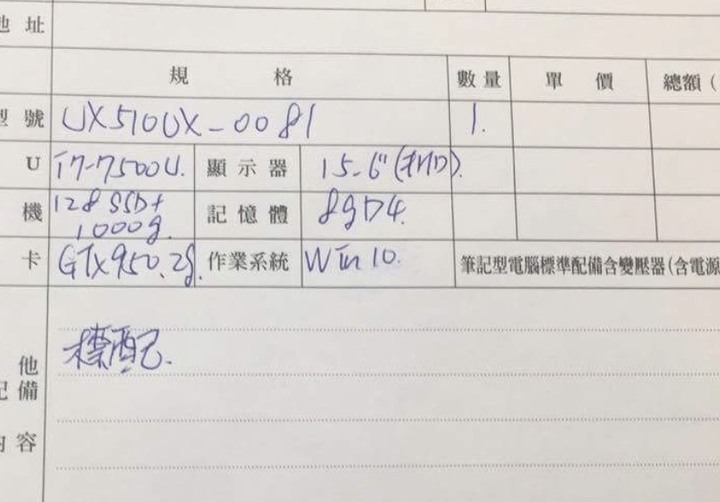 地 址
規 格 數量 單 價 總額(
型 號 UX510UX-0081 1.
U i7-7500U. 顯 示 器 15.6" (FHD).
機 128 SSD+ 1000g. 記 憶 體 8gD4.
卡 GTX950.2g. 作業系統 Win 10. 筆記型電腦標準配備含變壓器(含電源
標配.
他
配 備
內 容